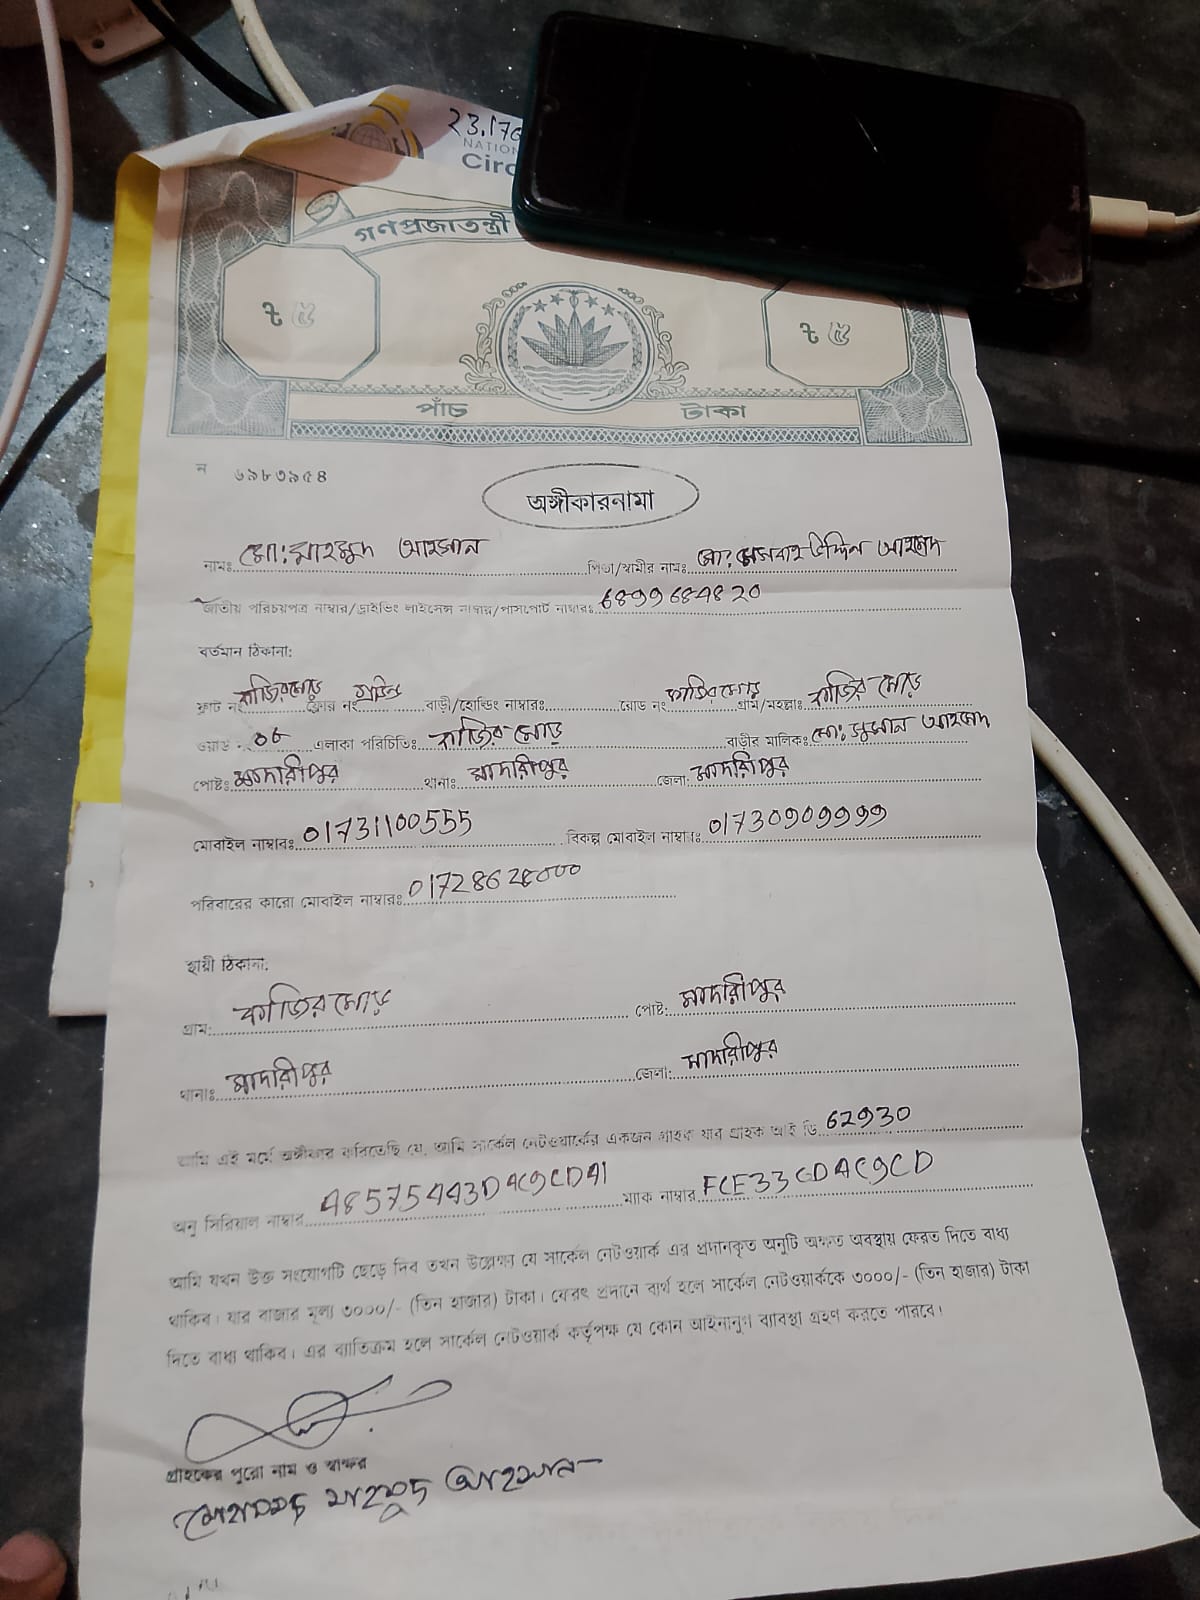 23.176
NATION
Circ
গণপ্রজাতন্ত্রী
৳ ৫ ৳ ৫
পাঁচ টাকা
ন ৬৯৮৩৯৫৪
অঙ্গীকারনামা
নামঃ মো: মাহমুদ আহসান পিতা/স্বামীর নামঃ মো: মেসবাহ উদ্দিন আহমেদ
জাতীয় পরিচয়পত্র নাম্বার/ড্রাইভিং লাইসেন্স নাম্বার/পাসপোর্ট নাম্বারঃ 6899684820
বর্তমান ঠিকানা:
ফ্লাট নং কাজিরমোড় ফ্লোর নং বাড়ী/হোল্ডিং নাম্বারঃ রোড নং কাজিরমোড় গ্রাম/মহল্লাঃ কাজির মোড়
ওয়ার্ড এলাকা পরিচিতিঃ কাজির মোড় বাড়ীর মালিক: মো: সুমান আহমেদ
পোষ্টঃ মাদারীপুর থানাঃ মাদারীপুর জেলা: মাদারীপুর
মোবাইল নাম্বারঃ 01731100555 বিকল্প মোবাইল নাম্বারঃ 01730909999
পরিবারের কারো মোবাইল নাম্বারঃ
স্থায়ী ঠিকানা:
গ্রাম: কাজিরমোড় পোষ্ট: মাদারীপুর
থানাঃ মাদারীপুর জেলা: মাদারীপুর
আমি এই মর্মে অঙ্গীকার করিতেছি যে, আমি সার্কেল নেটওয়ার্কের একজন গ্রাহক যার গ্রাহক আই ডি 62930
অনু সিরিয়াল নাম্বার 48575443DAC9CDA1 ম্যাক নাম্বার FCE33CDAC9CD
আমি যখন উক্ত সংযোগটি ছেড়ে দিব তখন উল্লেক্ষ্য যে সার্কেল নেটওয়ার্ক এর প্রদানকৃত অনুটি অক্ষত অবস্থায় ফেরত দিতে বাধ্য
থাকিব। যার বাজার মূল্য ৩০০০/- (তিন হাজার) টাকা। ফেরৎ প্রদানে ব্যর্থ হলে সার্কেল নেটওয়ার্ককে ৩০০০/- (তিন হাজার) টাকা
দিতে বাধ্য থাকিব। এর ব্যাতিক্রম হলে সার্কেল নেটওয়ার্ক কর্তৃপক্ষ যে কোন আইনানুগ ব্যাবস্থা গ্রহণ করতে পারবে।
গ্রাহকের পুরো নাম ও স্বাক্ষর
মোহাম্মদ মাহমুদ আহসান